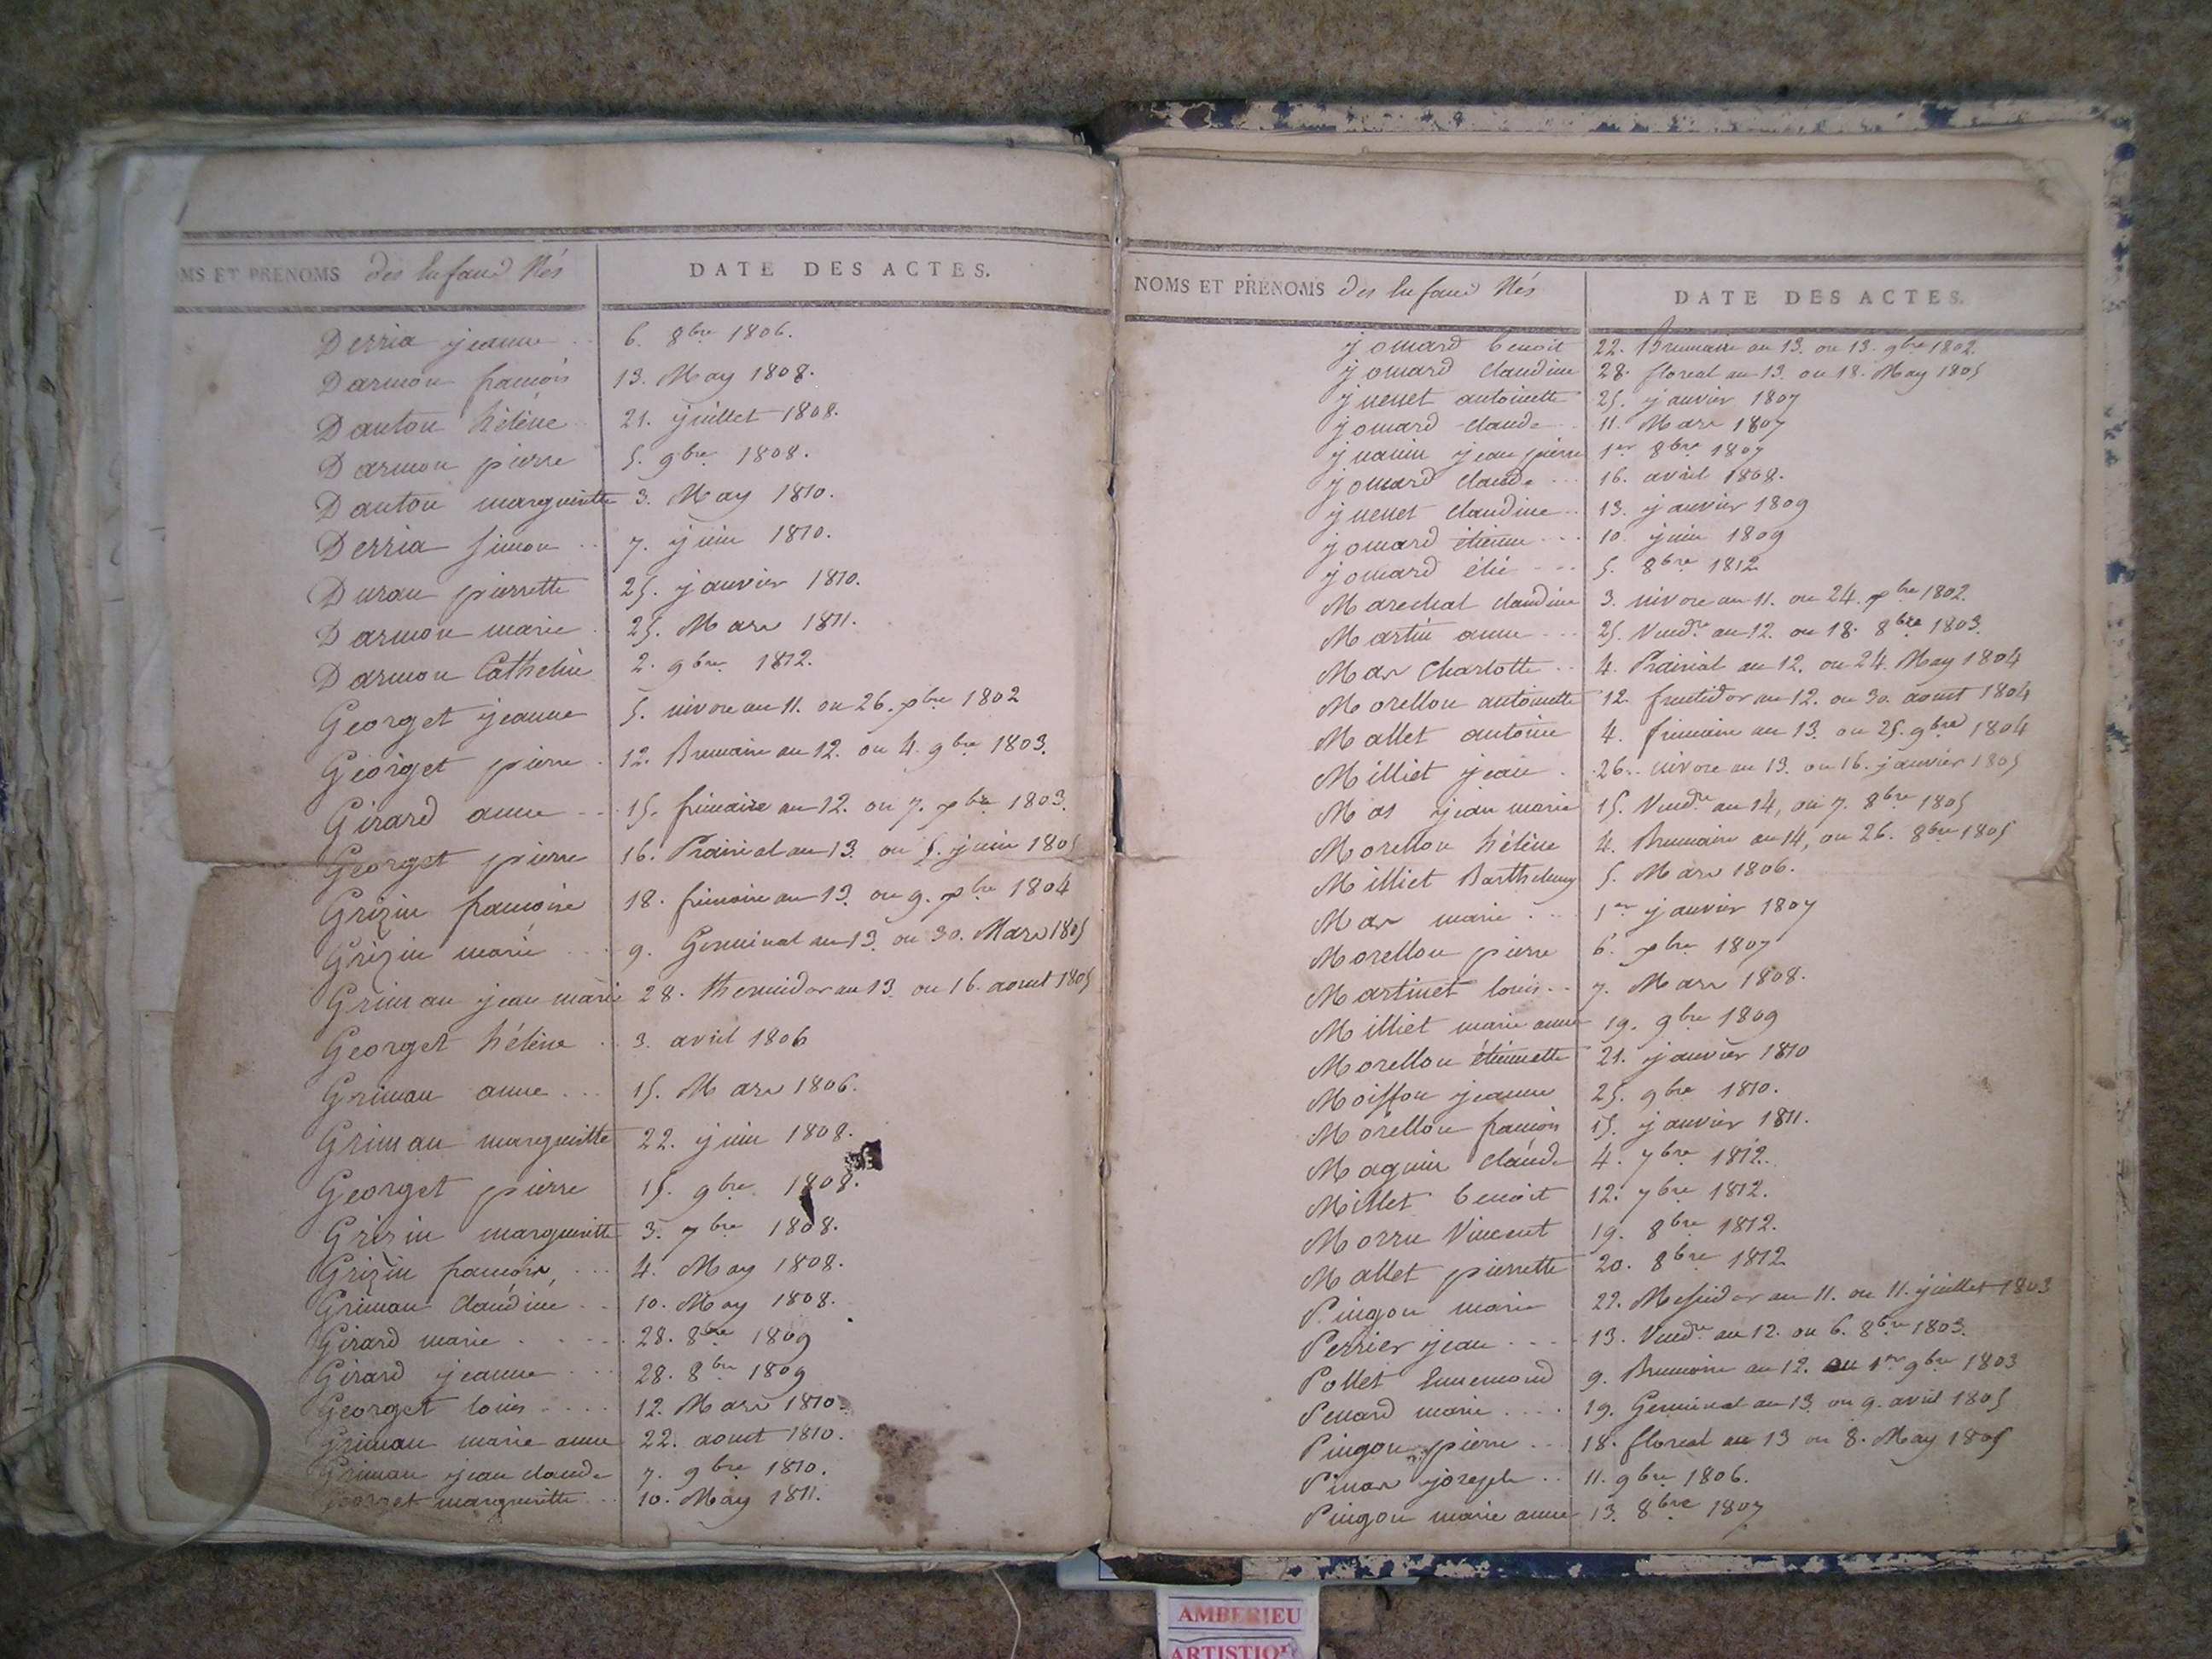 MS ET PRENOMS des Enfans Nés
DATE DES ACTES.
Derria jeanne .. 6. 8bre 1806.
Darmon francois 13. May 1808.
Danton hélène 21. juillet 1808.
Darmon pierre 5. 9bre 1808.
Danton margueritte 3. May 1810.
Derria simon .. 7. juin 1810.
Duran pierrette 25. janvier 1810.
Darmon marie . 25. Mars 1811.
Darmon Cathelin 2. 9bre 1812.
Georget jeanne 5. nivose an 11. ou 26. xbre 1802
Georget pierre . 12. Brumaire an 12. ou 4. 9bre 1803.
Girard anne .. 15. frimaire an 12. ou 7. xbre 1803.
Georget pierre 16. Prairial an 13. ou 5. juin 1805
Grizin francoise 18. frimaire an 13. ou 9. xbre 1804
Grizin marie .. 9. Germinal an 13. ou 30. Mars 1805
Griman jean marie 28. thermidor an 13. ou 16. aoust 1805
Georget hélène . 3. avril 1806
Griman anne ... 15. Mars 1806.
Griman margueritte 22. juin 1808.
Georget pierre 15. 9bre 1808.
Grizin margueritte 3. 7bre 1808.
Grizin francois ... 4. May 1808.
Griman claudine .. 10. May 1808.
Girard marie .... 28. 8bre 1809
Girard jeanne ... 28. 8bre 1809
Georget louis .... 12. Mars 1810.
Griman marie anne 22. aoust 1810.
Griman jean claude 7. 9bre 1810.
Georget margueritte .. 10. May 1811.
NOMS ET PRÉNOMS des Enfans Nés
DATE DES ACTES.
jomard benoit 22. Brumaire an 13. ou 13. 9bre 1802.
jomard claudine 28. floreal an 13. ou 18. May 1805
juenet antoinette 25. janvier 1807
jomard claude .. 11. Mars 1807
juanin jean pierre 1er 8bre 1807
jomard claude ... 16. avril 1808.
juenet claudine .. 13. janvier 1809
jomard étienne ... 10. juin 1809
jomard élie ... 5. 8bre 1812
Marechal claudine 3. nivose an 11. ou 24. xbre 1802.
Martin anne ... 25. Vendre an 12. ou 18. 8bre 1803.
Mas Charlotte .. 4. Prairial an 12. ou 24. May 1804
Morellon antoinette 12. fructidor an 12. ou 30. aoust 1804
Mallet antoine 4. frimaire an 13. ou 25. 9bre 1804
Milliet jean . 26. nivose an 13. ou 16. janvier 1805
Mas jean marie 15. Vendre an 14, ou 7. 8bre 1805
Morellon hélène 4. Brumaire an 14, ou 26. 8bre 1805
Milliet Barthelemy 5. Mars 1806.
Mas marie ... 1er janvier 1807
Morellon pierre 6. xbre 1807
Martinet louis .. 7. Mars 1808.
Milliet marie anne 19. 9bre 1809
Morellon étiennette 21. janvier 1810
Moisson jeanne 25. 9bre 1810.
Morellon francois 15. janvier 1811.
Magnin claude 4. 7bre 1812.
Millet benoit 12. 7bre 1812.
Morru Vincent 19. 8bre 1812.
Mallet pierrette 20. 8bre 1812
Pingon marie 22. Messidor an 11. ou 11. juillet 1803
Perrier jean ... 13. Vendre an 12. ou 6. 8bre 1803.
Pollet Ennemond 9. Brumaire an 12. ou 1er 9bre 1803
Penard marie .... 19. Germinal an 13. ou 9. avril 1805
Pingon pierre .. 18. floreal an 13 ou 8. May 1805
Pinas joseph .. 11. 9bre 1806.
Pingon marie anne 13. 8bre 1807
AMBERIEU
ARTISTIQ